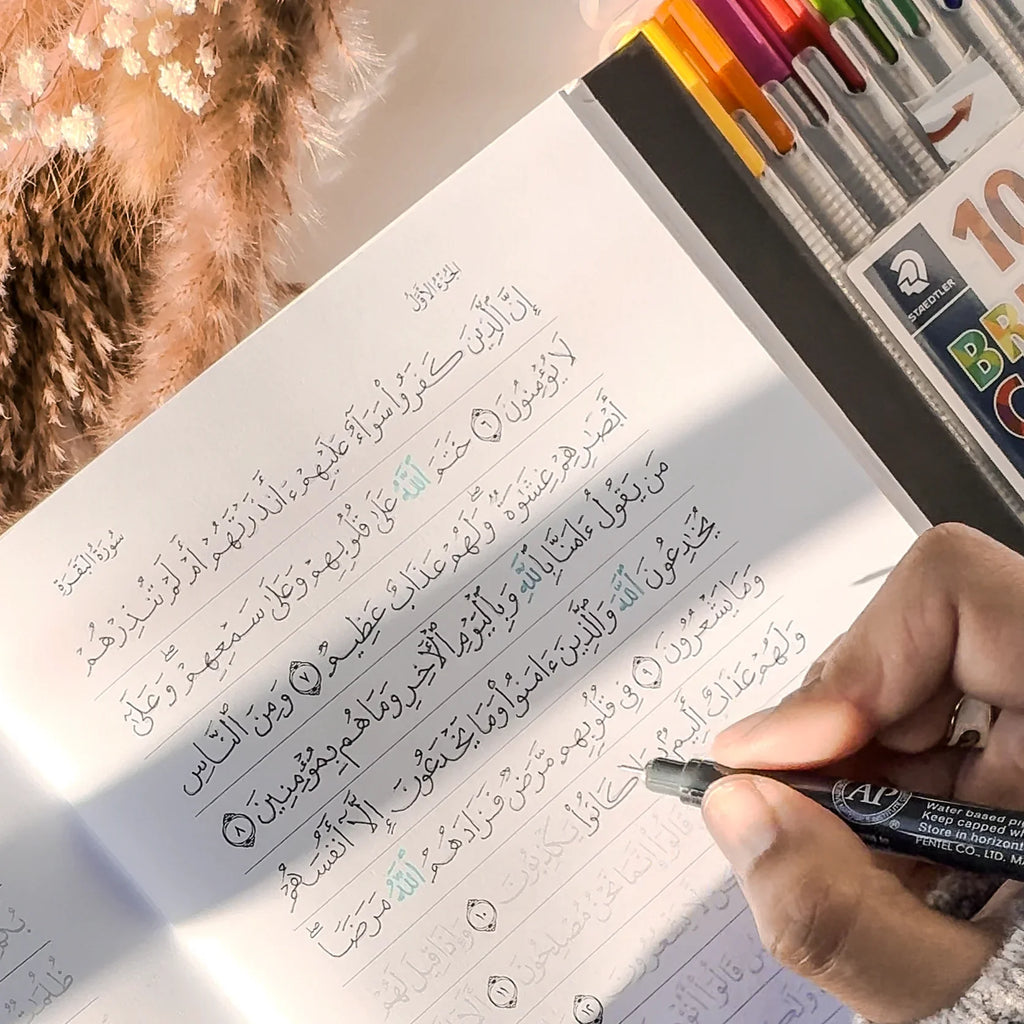 الجزء الأول
سورة البقرة
إِنَّ ٱلَّذِينَ كَفَرُوا۟ سَوَآءٌ عَلَيْهِمْ ءَأَنذَرْتَهُمْ أَمْ لَمْ تُنذِرْهُمْ
لَا يُؤْمِنُونَ ٦ خَتَمَ ٱللَّهُ عَلَىٰ قُلُوبِهِمْ وَعَلَىٰ سَمْعِهِمْ ۖ وَعَلَىٰٓ
أَبْصَـٰرِهِمْ غِشَـٰوَةٌ ۖ وَلَهُمْ عَذَابٌ عَظِيمٌ ٧ وَمِنَ ٱلنَّاسِ
مَن يَقُولُ ءَامَنَّا بِٱللَّهِ وَبِٱلْيَوْمِ ٱلْـَٔاخِرِ وَمَا هُم بِمُؤْمِنِينَ ٨
يُخَـٰدِعُونَ ٱللَّهَ وَٱلَّذِينَ ءَامَنُوا۟ وَمَا يَخْدَعُونَ إِلَّآ أَنفُسَهُمْ
وَمَا يَشْعُرُونَ ٩ فِى قُلُوبِهِم مَّرَضٌ فَزَادَهُمُ ٱللَّهُ مَرَضًا ۖ
وَلَهُمْ عَذَابٌ أَلِيمٌۢ بِمَا كَانُوا۟ يَكْذِبُونَ ١٠ وَإِذَا قِيلَ لَهُمْ
قَالُوٓا۟ إِنَّمَا نَحْنُ مُصْلِحُونَ ١١
لَّا يَشْعُرُونَ ١٢
STAEDTLER
10
BR
AP
Water based
Keep capped
Store in horizont
PENTEL CO., LTD.